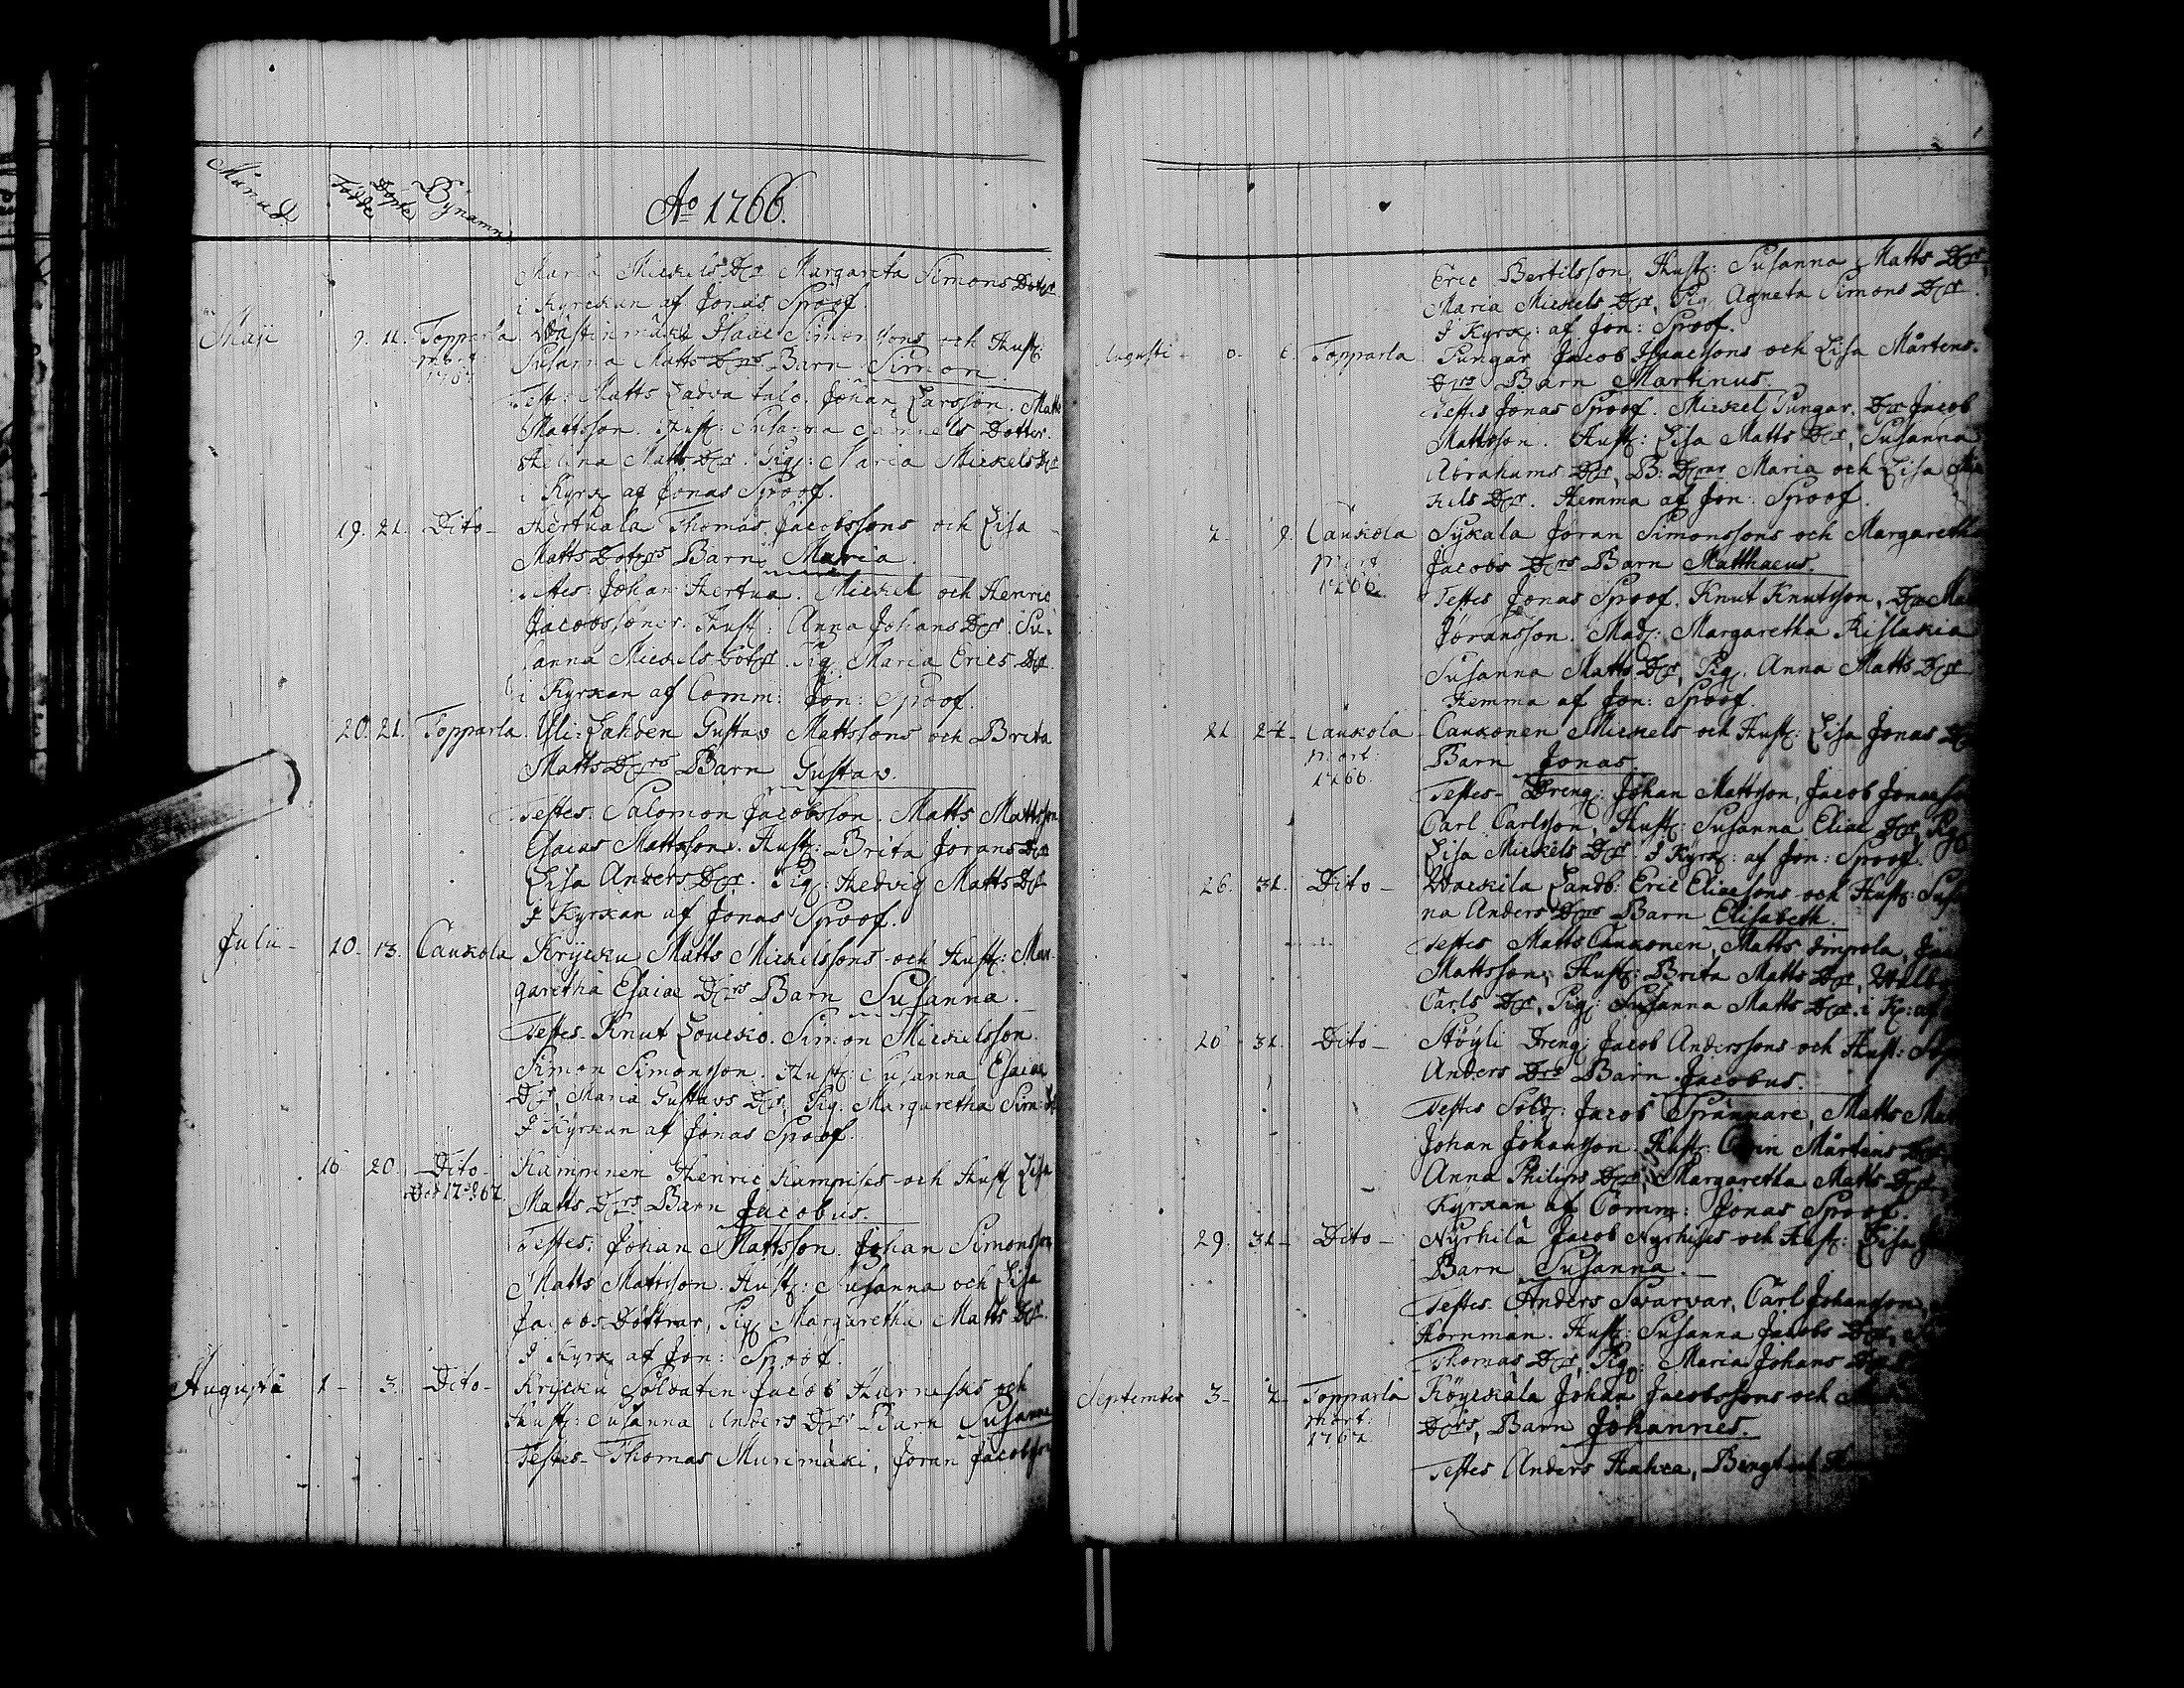 Månad. Födde Döpte Bynamn Ao 1766.
Maria Mickels Dtr Margareta Simons Dotter
i Kyrckan af Jonas Sproof
Maji 9. 11. Topparla Isaac Simonssons och Hust:
mort: Susanna Matts Dtrs Barn Simon.
Test: Matts Ladvatalo. Johan Larsson. Matts
Mattsson. Hust: Susanna Dotter.
Helena Matts Dtr. Pig: Maria Mickels Dtr
i Kyrk af Jonas Sproof.
19. 21. Dito - Hertuala Thomas Jacobssons och Lisa
Matts Dotrs Barn Maria.
Testes: Johan Hertua. Mickel och Henric
Jacobssöner. Hust: Anna Johans Dtr. Su-
sanna Mickels Dotr. Pig Maria Erics Dtr.
i Kyrkan af Comm: Jon: Sproof.
20. 21. Topparla. Uli-Lahden Gustav Mattssons och Brita
Matts Dtrs Barn Gustav.
Testes. Salomon Jacobsson. Matts Mattsson
Esaias Mattsson. Hust: Brita Jörans Dtr
Lisa Anders Dtr. Pig: Hedvig Matts Dtr
I Kyrkan af Jonas Sproof.
Julii - 10. 13. Caukola Krycku Matts Mickelssons och Hust: Mar-
garetha Esaiae Dtrs Barn Susanna.
Testes. Knut Loucko. Simon Mickelsson.
Simon Simonsson. Hust: Susanna Esaiae
Dtr, Maria Gustavs Dtr, Pig. Margaretha Sim:
I Kyrkan af Jonas Sproof.
16 20. Dito - Kampinen Henric Kampises och Hust Lisa
Matts Dtrs Barn Jacobus.
Testes: Johan Mattsson. Johan Simonsson
Matts Mattsson. Hust: Susanna och Lisa
Jacobs Döttrar, Pig Margaretha Matts Dtr.
I Kyrk af Jon: Sproof.
Augusti 1 - 3. Dito - Krycku Soldaten Jacob Harnesks och
Hust: Susanna Anders Dtrs Barn Susanna
Testes - Thomas Murimäki, Jöran Jacobsson
Eric Bertilsson, Hust: Susanna Matts Dtr,
Maria Mickels Dtr, Pig Agneta Simons Dtr.
I Kyrk: af Jon: Sproof.
Augusti - 6. Topparla Pungar Jacob Isaacssons och Lisa Mårtens-
Dtrs Barn Martinus.
Testes Jonas Sproof. Mickel Pungar. Jacob
Mattsson. Hust: Lisa Matts Dtr, Susanna
Abrahams Dtr, B: Dtrar Maria och Lisa Mic
kels Dtr. Hemma af Jon: Sproof.
7. 9. Caukola Sykala Jöran Simonssons och Margaretha
mort 1766. Jacobs Dtrs Barn Matthaeus.
Testes Jonas Sproof. Knut Knutsson,
Jöransson. Mad: Margaretha Rislakia
Susanna Matts Dtr, Pig. Anna Matts Dtr
Hemma af Jon: Sproof.
21 24 - Caukola - Caukonen Mickels och Hust: Lisa Jonas
mort: 1766. Barn Jonas.
Testes - Dreng: Johan Mattsson, Jacob
Carl Carlsson, Hust: Susanna Eliae Dtr,
Lisa Mickels Dtr. I Kyrk: af Jon: Sproof.
26. 31. Dito - Wäckilä Landb: Eric Eliaesons och Hust: Susa
na Anders Dtrs Barn Elisabeth.
Testes Matts Caukonen, Matts Impola,
Mattsson, Hust: Brita Matts Dtr,
Carls Dtr, Pig: Susanna Matts Dtr. i K: af
26 31. Dito - Stöyli Dreng: Jacob Anderssons och Hust:
Anders Dtrs Barn Jacobus.
Testes Sold: Jacob Sprännare, Matts
Johan Johansson. Hust: Carin Mårtens Dtr
Anna Philips Dtr, Margaretha Matts Dtr
Kyrkan af Comm: Jonas Sproof.
29. 31 - Dito - Nyrhilä Jacob Nyrhises och Hust: Lisa
Barn Susanna.
Testes. Anders Swarvar, Carl Johansson,
Hornman. Hust: Susanna Jacobs Dtr,
Thomas Dtr, Pig: Maria Johans Dtr
September 3 - 7 - Topparla Köyckälä Johan Jacobssons och
mort: 1767. Dtrs, Barn Johannes.
Testes Anders Hakca, Bengt